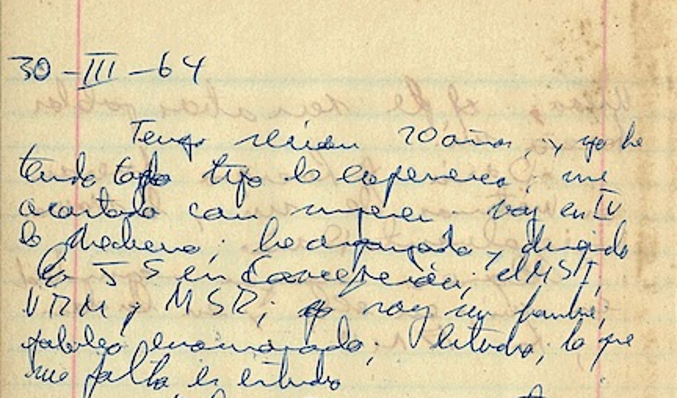 30-III-64
Tengo recién 20 años, y yo he
tenido todo tipo de experiencia; me
acostado con mujeres. Voy en IV
de Medicina; he organizado y dirigido
la JS en Concepción; el MSI,
VRM y MSR; soy un hombre,
enamorado; estudio, lo que
me falta es estudio